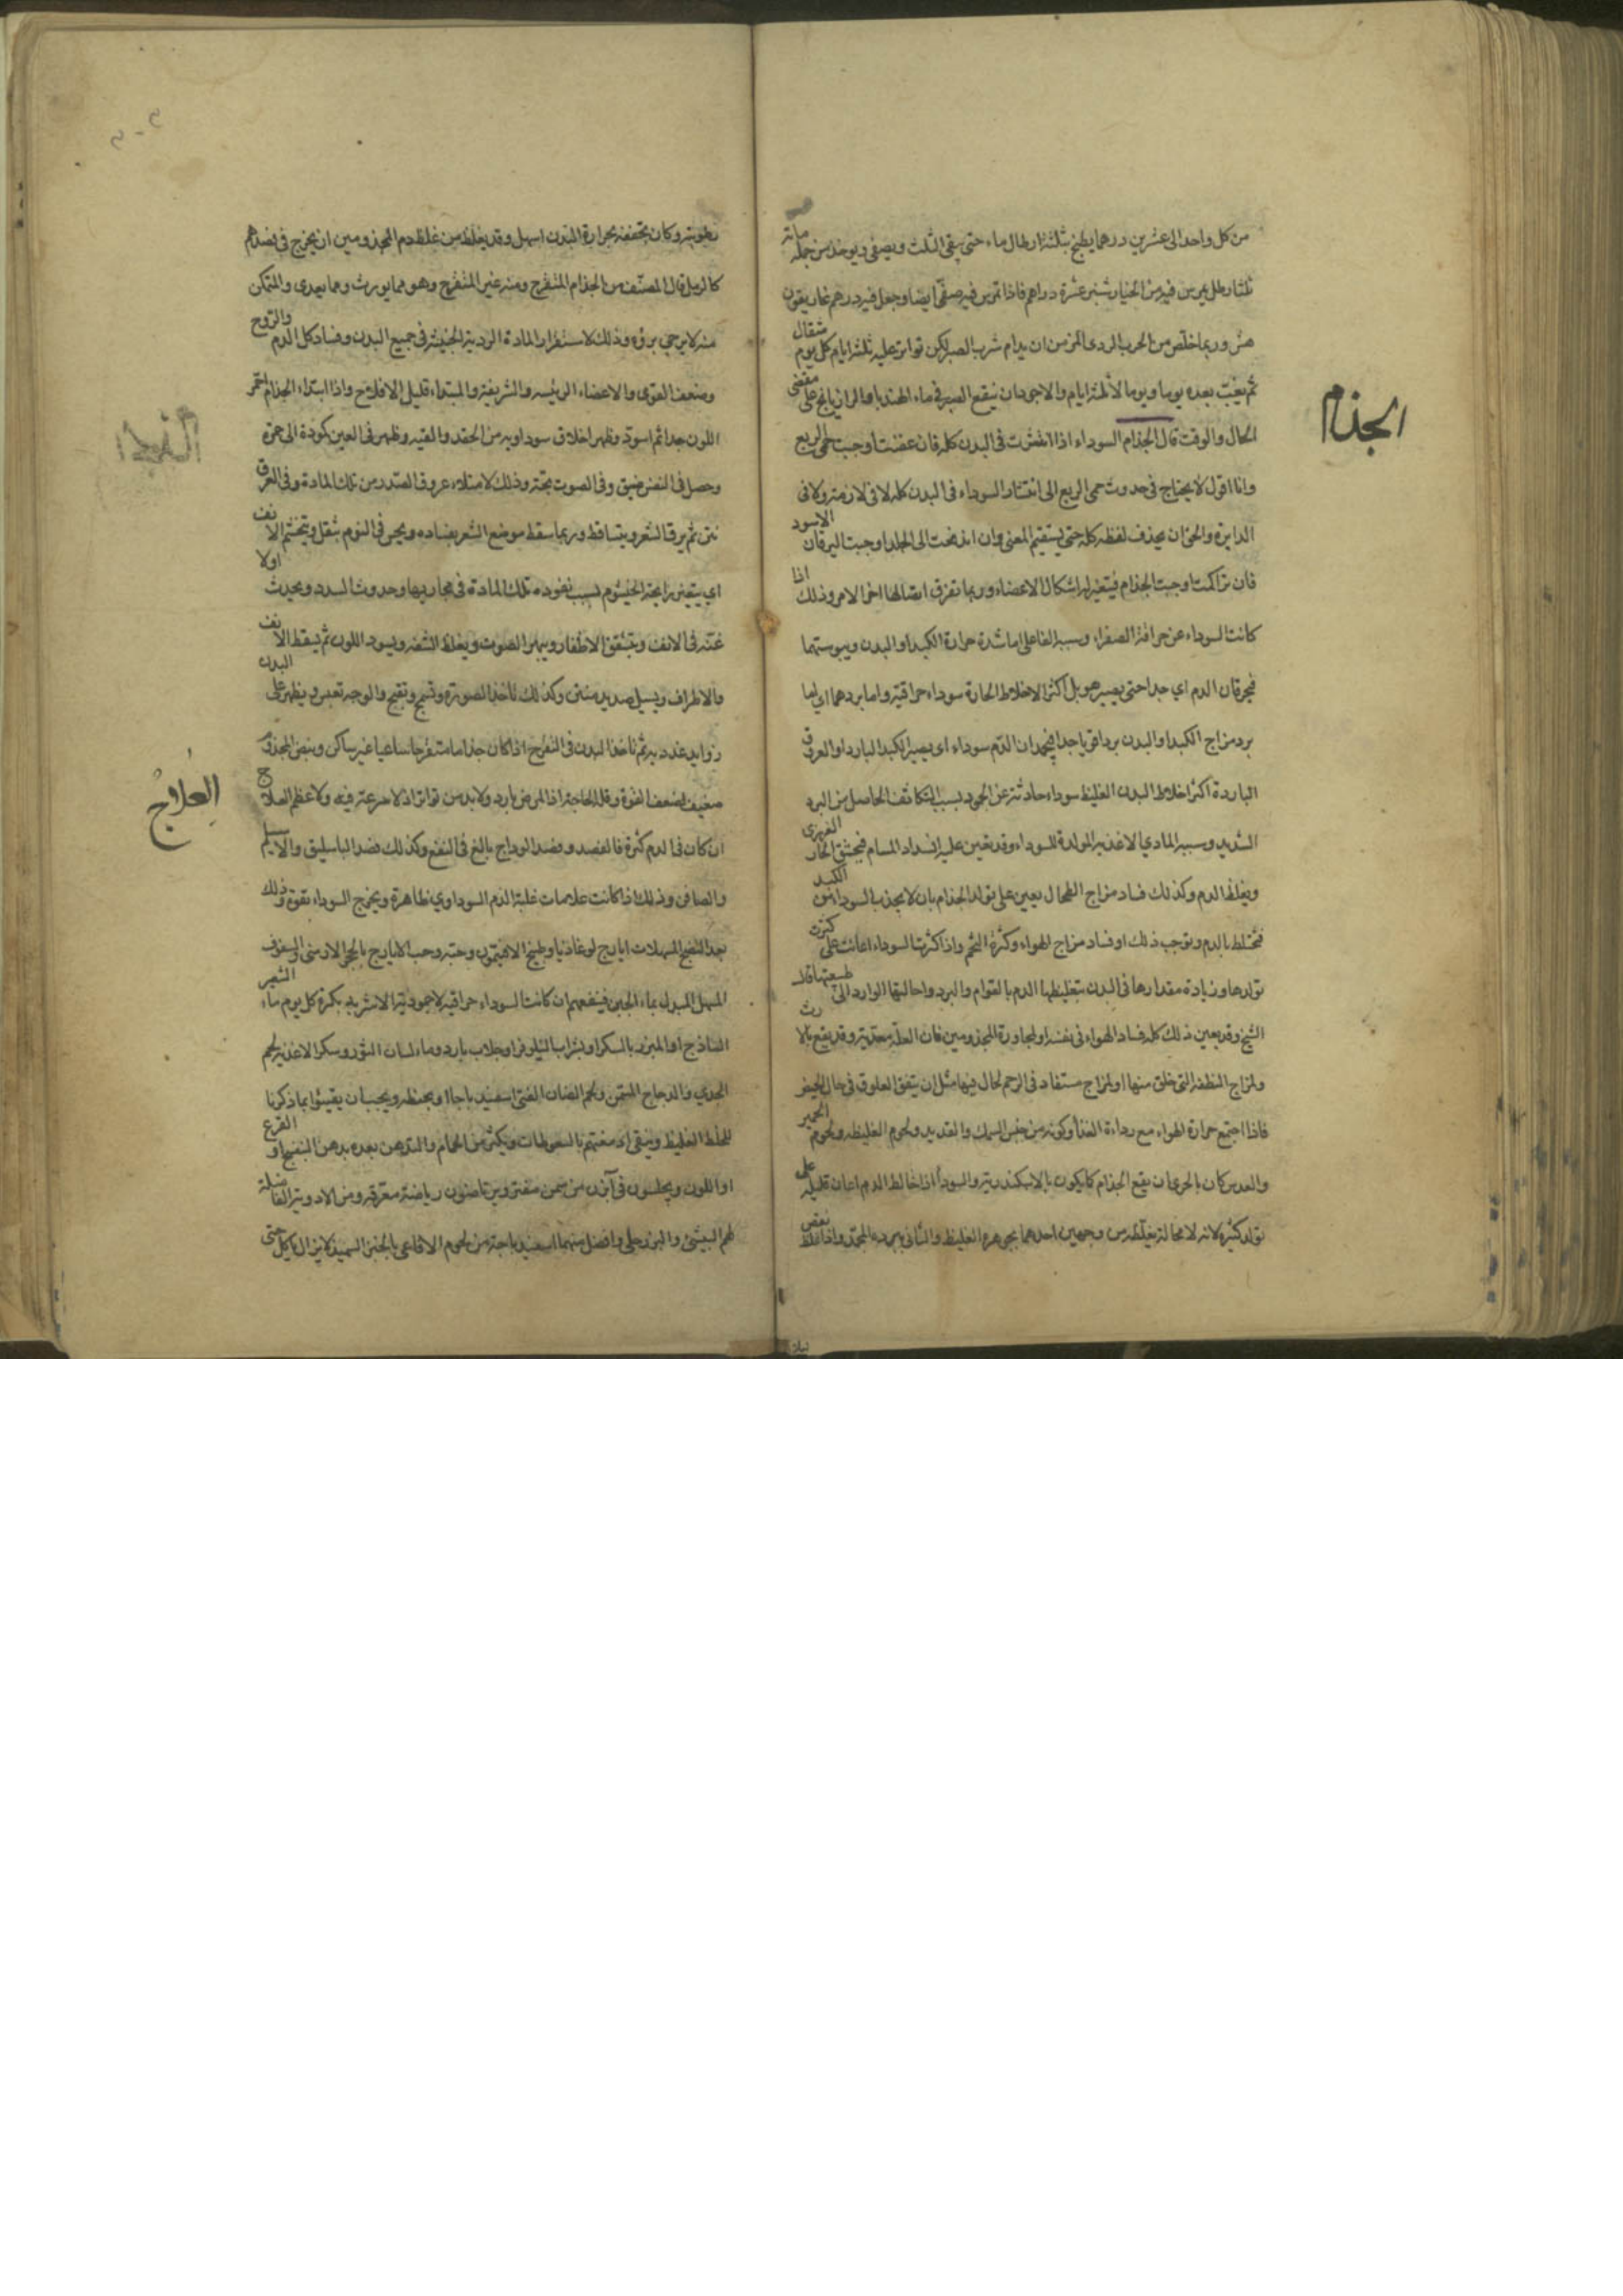 من كل واحد الى عشرين درهما يطبخ بثلثة ارطال ماء حتى يبقى الثلث ويصفى ويوخذ من جملة مائه
ثلثا رطل يمرس فيه من الخيار شنبر عشرة دراهم فاذا تمرس فيه صفى ايضا وجعل فيه درهم غاريقون
هش وربما خلص من الجرب الردى المزمن ان يدام شرب الصبر لكن تواتر عليه ثلثة ايام كل يوم مثقال
ثم يغب بعده يوما ويوما لا ثلثة ايام والاجود ان ينقع الصبر في ماء الهندبا والرازيانج على مقتضى
الحال والوقت قال الجذام السوداء اذا انتشرت في البدن كله فان عفنت اوجبت حمى الربع
وانا اقول لا يحتاج في حدوث حمى الربع الى انتشار السوداء في البدن كله لا في لازمته ولا في
الدايرة والحق ان يحذف لفظه كله حتى يستقيم المعنى وان اندفعت الى الجلد اوجبت اليرقان الاسود
فان تراكمت اوجبت الجذام فيتغير له اشكال الاعضاء وربما تفرق اتصالها اخر الامر وذلك اذا
كانت السوداء عن حراقة الصفراء وسببه الفاعلى اما شدة حرارة الكبد او البدن ويبوستهما
فيحرقان الدم اي جدا حتى يصير هو بل اكثر الاخلاط الحارة سوداء حراقية واما بردهما اي اما
برد مزاج الكبد او البدن بردا قويا جدا فيجمدان الدم سوداء اي يصير الكبد البارد او العروق
الباردة اكثر اخلاط البدن الغليظ سوداء حادثة عن الجمود بسبب التكاثف الحاصل من البرد
الشديد وسببه المادي الاغذية المولدة للسوداء وقد يعين عليه انسداد المسام فيختنق الحار الغريزى
ويغلظ الدم وكذلك فساد مزاج الطحال يعين على تولد الجذام بان لا يجذب السوداء من الكبد
فيختلط بالدم ويوجب ذلك او فساد مزاج الهواء وكثرة التخم واذا كثرت السوداء اعانت على كثرة
تولدها وزيادة مقدارها في البدن بتغليظها الدم بالقوام والبرد واحالتها الوارد الى طبيعتها قال
الشيخ وقد يعين ذلك كله فساد الهواء في نفسه او لمجاورة المجذومين فان العلة معدية وقد يقع بالارث
ولمزاج النطفة التى خلق منها او لمزاج مستفاد في الرحم لحال فيها مثل ان يتفق العلوق في حال الحيض
فاذا اجتمع حرارة الهواء مع رداءة الغذاء وكونه من جنس السمك والقديد ولحوم الغليظة ولحوم الحمير
والعدس كان بالحرى ان يقع الجذام كما يكون بالاسكندرية والسوداء اذا خالط الدم اعان قليله على
تولد كثيره لانه لا محالة يغلظه من وجهين احدهما بجوهره الغليظ والثانى ببرده المجمد واذا غلظ بعض
الجذام
رطوبته وكان تجفيفه بحرارة البدن اسهل وقد يغلظ من غلظ دم المجذومين ان يخرج في فصدهم
كالرمل قال المصنف من الجذام المتقرح ومنه غير المتقرح وهو مما يورث ومما يعدى والمتمكن
منه لا يرجى برؤه وذلك لاستقرار المادة الردية الخبيثة في جميع البدن وفساد كل الدم والروح
وضعف القوى والاعضاء الرئيسه والشريفة والمبتداء قليل الافلاح واذا ابتداء الجذام احمر
اللون جدا ثم اسود وظهر اخلاق سوداوية من الحقد والتيه وظهر في العين كمودة الى حمرة
وحصل في النفس ضيق وفى الصوت بحة وذلك لامتلاء عروق الصدر من تلك المادة وفى العرق
نتن ثم يرق الشعر ويتساقط وربما سقط موضع الشعر بفساده ويحس في النوم بثقل ويتخشم الانف
اي يتغير رايحة الخيشوم بسبب نفوذ تلك المادة في مجاريها وحدوث السدد ويحدث اولا
غنة في الانف ويتشقق الاظفار ويبهر الصوت ويغلظ الشفه ويسود اللون ثم يسقط الانف
والاطراف ويسيل صديد منتن وكذلك تاخذ الصورة وتسمج وتقبح والوجه تعبس ويظهر على البدن
زوايد غددية ثم تاخذ البدن في التقرح اذا كان جذاما متقرحا ساعيا غير ساكن ونبض المجذوم
ضعيف لضعف القوة وقلة الحاجة اذ المرض بارد ولا بد من تواتر اذ لا سرعة فيه ولا عظم العلاج
ان كان في الدم كثرة فالفصد وفصد الوداج بالغ في النفع وكذلك فصد الباسليق والاسيلم
والصافن وذلك اذا كانت علامات غلبة الدم السوداوي ظاهرة ويخرج السوداء بقوة وذلك
بعد النضج المسهلات ايارج لوغاذيا وطبيخ الافتيمون وحبه وحب الايارج بالحجر الارمنى او السفوف
المسهل المبدل بماء الجبن فينفعهم ان كانت السوداء حراقية لا جمودية الاشربة بكرة كل يوم ماء الشعير
الساذج او المبزر بالسكر او بشراب النيلوفر او جلاب بارد وماء لسان الثور وسكر الاغذية لحم
الجدي والدجاج المسمن ولحم الضان الفتى اسفيدباجا او بحنطه ويجب ان يقيئوا بما ذكرنا
للخلط الغليظ وينقى ادمغتهم بالسعوطات ويكثر من الحمام والتدهن بعده بدهن البنفسج او القرع
او اللوز ويجلسون في آبزن من سمن مفتر ويرتاضون رياضة معرقه ومن الادوية الفاضلة
لهم البيشى والبزرجلى وافضل منهما اسفيدباجة من لحوم الافاعى بالخبز السميذ لا يزال ياكل حتى
العلاج